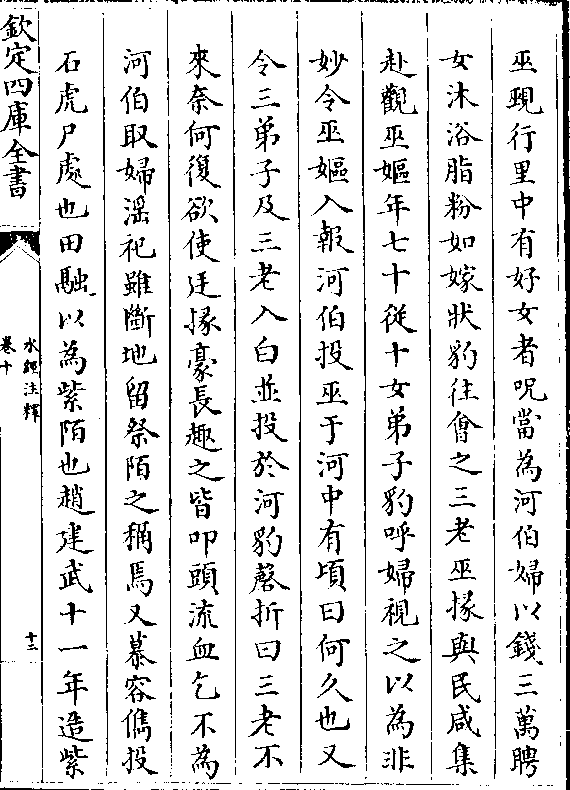 巫覡行里中有好女者呪當為河伯婦以錢三萬聘
女沐浴脂粉如嫁狀豹往㑹之三老巫掾與民咸集
赴觀巫嫗年七十從十女弟子豹呼婦視之以為非
妙令巫嫗入報河伯投巫于河中有頃曰何久也又
令三弟子及三老入白並投於河豹磬折曰三老不
來奈何復欲使廷掾豪長趣之皆叩頭流血乞不為
河伯取婦淫祀雖斷地留祭陌之稱焉又慕容儁投
石虎尸處也田融以為紫陌也趙建武十一年造紫
欽定四庫全書
水經注釋
卷十
十三